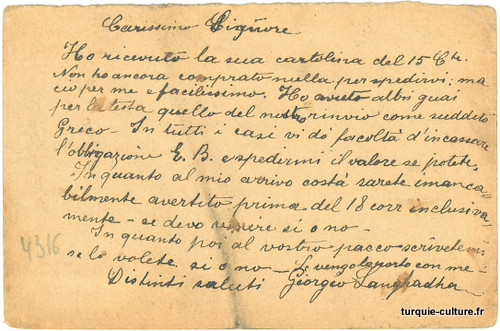 Carissimo Signore
Ho ricevuto la sua cartolina del 15 Cte.
Non ho ancora comprato nulla per spedirvi; ma
ciò per me è facilissimo. Ho avuto altri guai
per la testa quello del nostro rinvio come suddito
Greco - In tutti i casi vi dò facoltà d'incassare
l'obbligazione E. B. e spedirmi il valore se potete.
In quanto al mio arrivo costà sarete imanca-
bilmente avertito prima del 18 corr inclusiva-
mente - se devo venire si o no -
In quanto poi al vostro pacco scrivetemi
se lo volete, si o no - Se vengo lo porto con me -
Distinti saluti Georgeo
4316
turquie-culture.fr